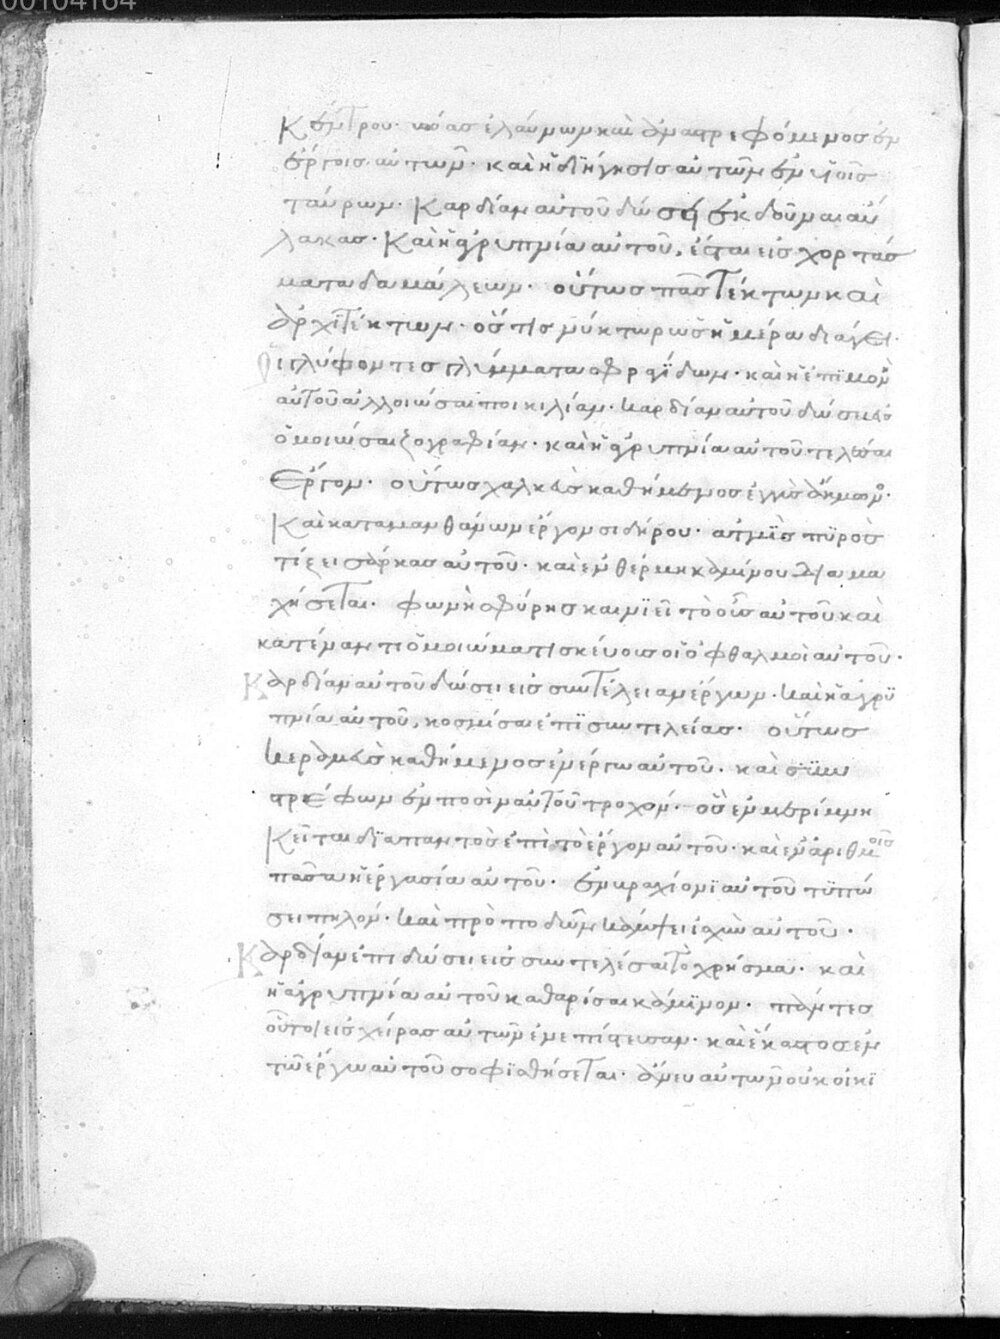 00104164
κέντρου· βόας ἐλαύνων καὶ ἀναστρεφόμενος ἐν
ἔργοις αὐτῶν· καὶ ἡ διήγησις αὐτῶν ἐν υἱοῖς
ταύρων· Καρδίαν αὐτοῦ δώσει ἐκδοῦναι αὔ
λακας· Καὶ ἡ ἀγρυπνία αὐτοῦ, ἔσται εἰς χορτάσ
ματα δαμάλεων· οὕτως πᾶς τέκτων καὶ
ἀρχιτέκτων· ὅστις νύκτωρ ὡς ἡμέρα διάγει·
Οἱ γλύφοντες γλύμματα σφραγίδων· καὶ ἡ ἐπιμονὴ
αὐτοῦ ἀλλοιῶσαι ποικιλίαν· καρδίαν αὐτοῦ δώσει εἰς
ὁμοιῶσαι ζογραφίαν· καὶ ἡ ἀγρυπνία αὐτοῦ τελέσαι
ἔργον· οὕτως χαλκεὺς καθήμενος ἐγγὺς ἄκμονος·
Καὶ καταμανθάνων ἔργον σιδήρου· ἀτμὶς πυρὸς
τήξει σάρκας αὐτοῦ· καὶ ἐν θέρμῃ καμίνου διαμα
χήσεται· φωνὴ σφύρης καινιεῖ τὸ οὖς αὐτοῦ καὶ
κατέναντι ὁμοιώματι σκεύους οἱ ὀφθαλμοὶ αὐτοῦ·
Καρδίαν αὐτοῦ δώσει εἰς συντέλειαν ἔργων· καὶ ἡ ἀγρυ
πνία αὐτοῦ, κοσμῆσαι ἐπὶ συντελείας· οὕτως
κεραμεὺς καθήμενος ἐν ἔργω αὐτοῦ· καὶ συ
στρέφων ἐν ποσὶν αὐτοῦ τροχόν· ὃς ἐν μερίμνη
κεῖται διαπαντὸς ἐπὶ τὸ ἔργον αὐτοῦ· καὶ ἐναρίθμιος
πᾶσα ἡ ἐργασία αὐτοῦ· ἐν βραχίονι αὐτοῦ τυπώ
σει πηλόν· καὶ πρὸ ποδῶν κάμψει ἰσχὺν αὐτοῦ·
Καρδίαν ἐπιδώσει εἰς συντελέσαι τὸ χρῆσμα· καὶ
ἡ ἀγρυπνία αὐτοῦ καθαρίσαι κάμινον· πάντες
οὗτοι εἰς χεῖρας αὐτῶν ἐνεπίστευσαν· καὶ ἕκαστος ἐν
τῶ ἔργω αὐτοῦ σοφισθήσεται· ἄνευ αὐτῶν οὐκ οἰκι